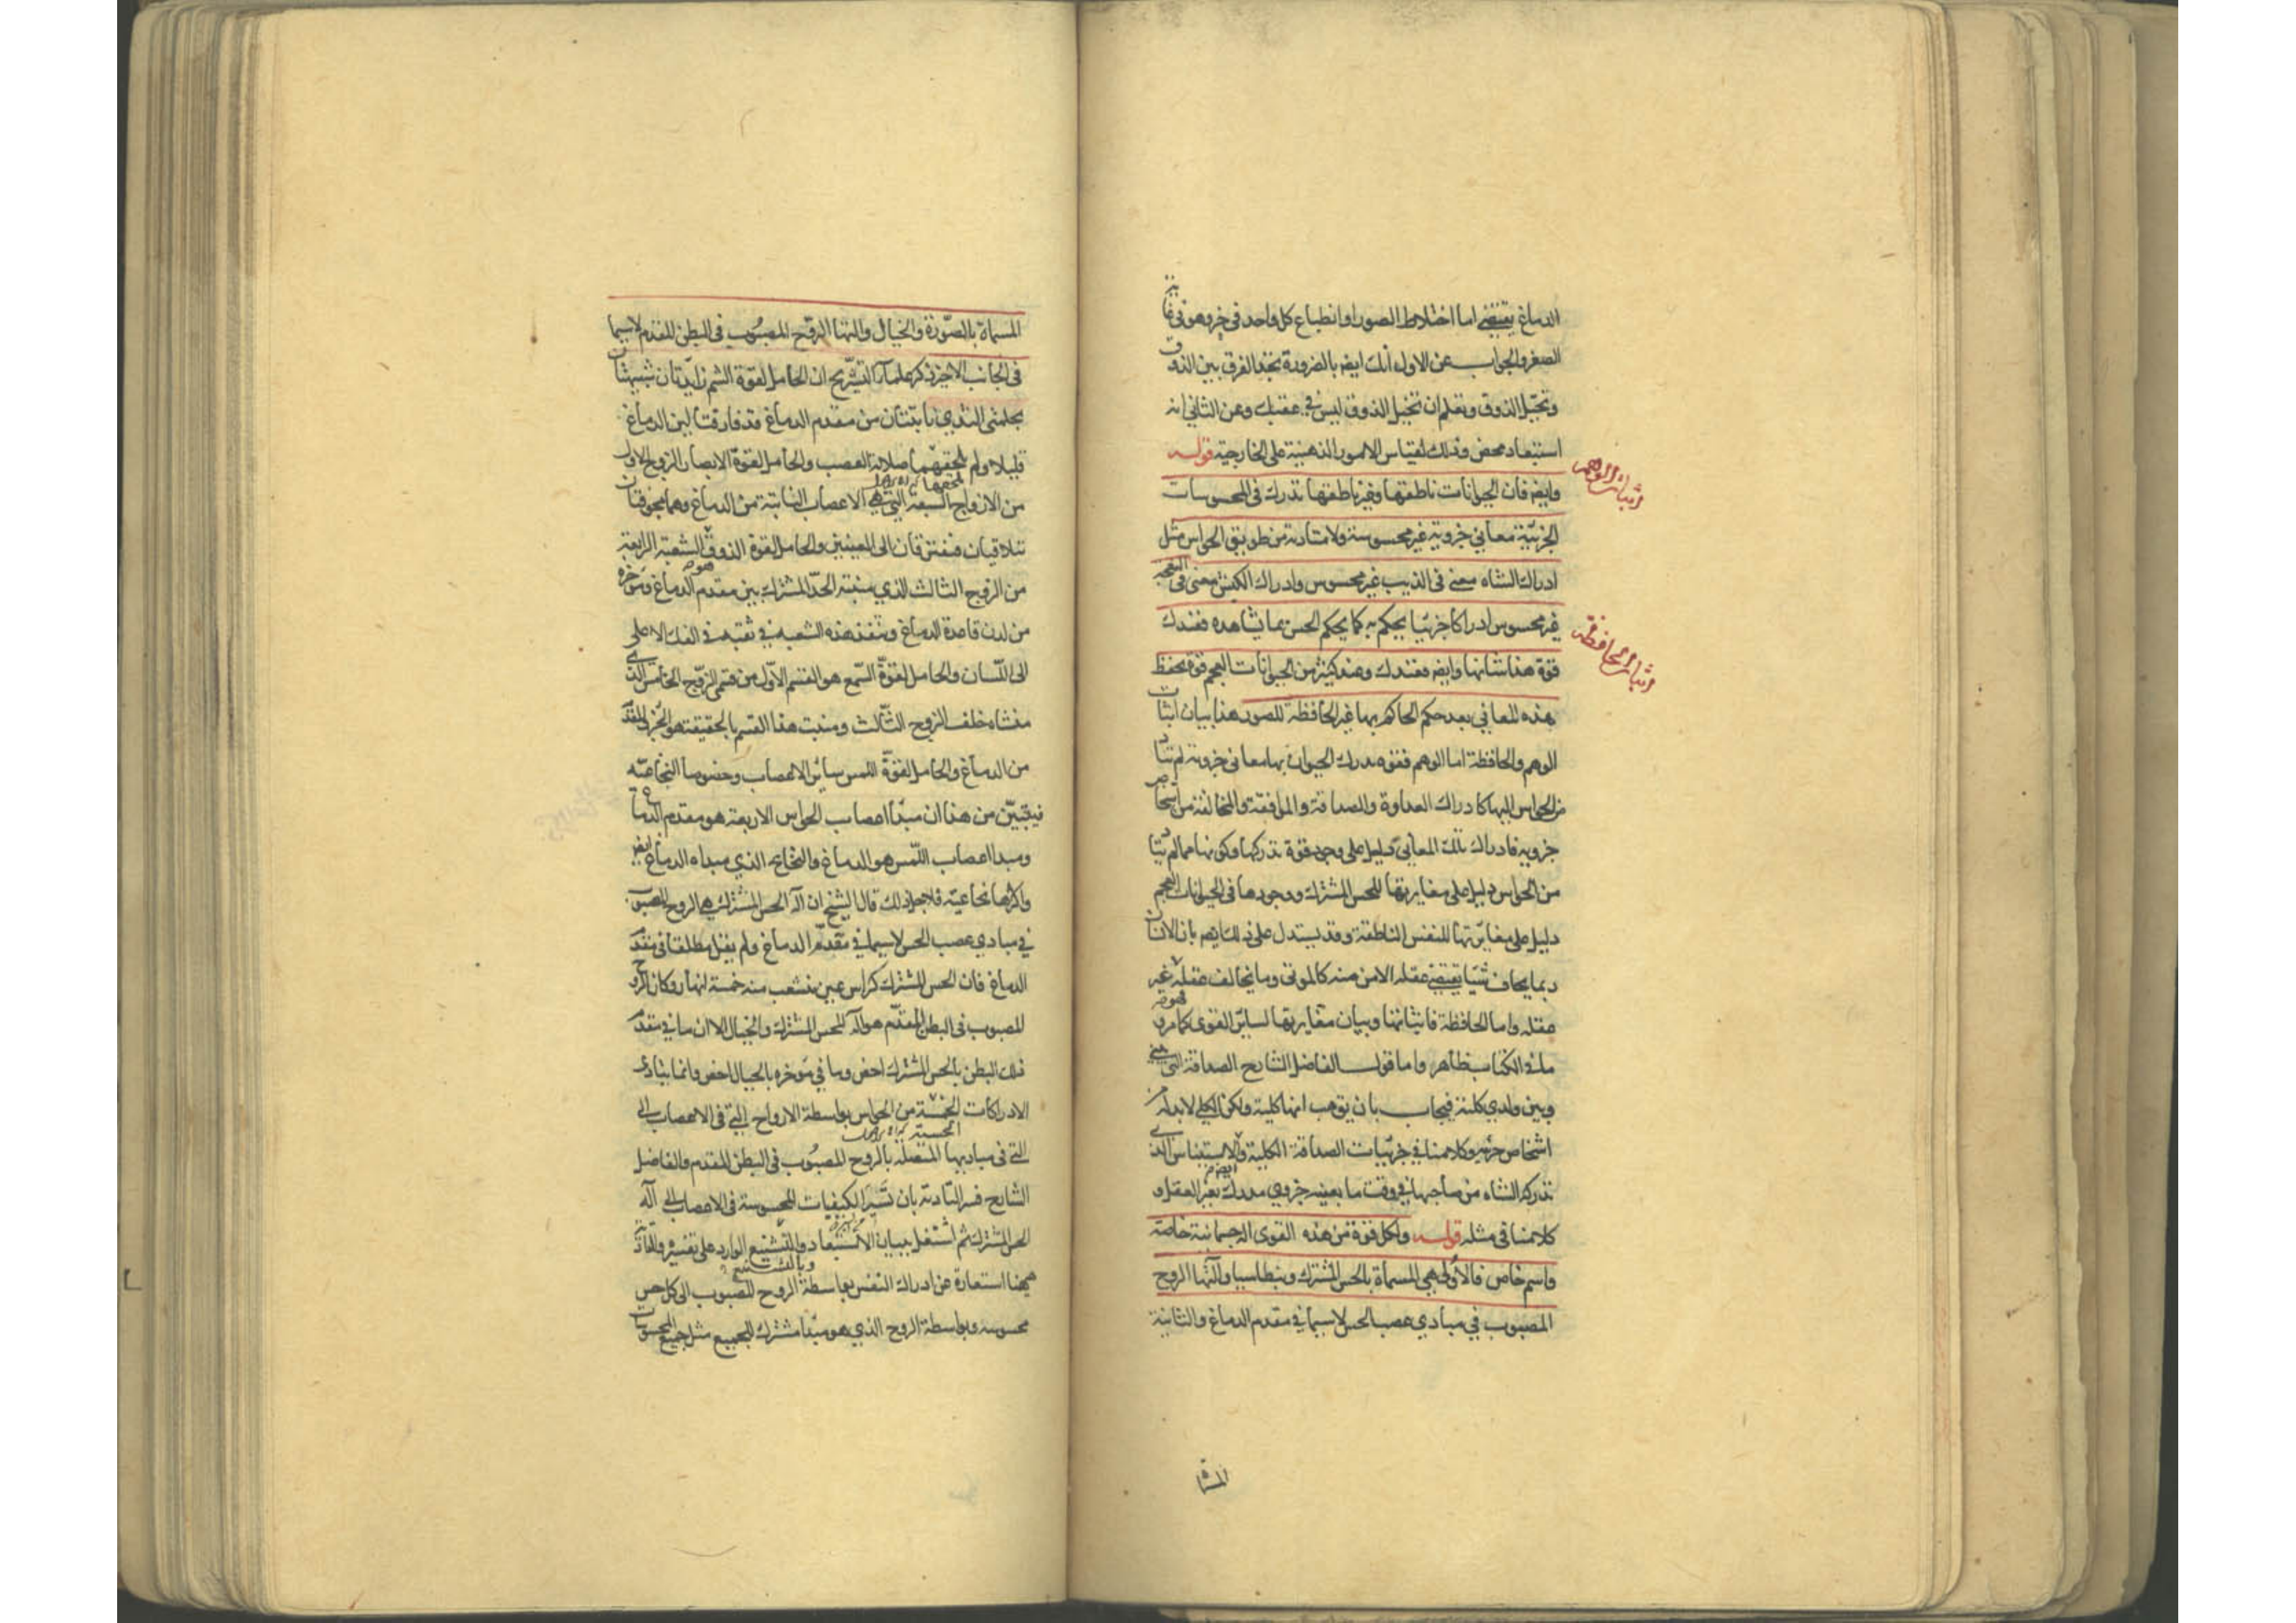 الدماغ يقتضى اما اختلاط الصور او انطباع كل واحد فى جزء هو فى غاية
الصغر والجواب عن الاول انك ايضا بالضرورة تجد الفرق بين الذوق
وتخيل الذوق وتعلم ان تخيل الذوق ليس فى عقبك وعن الثانى انه
استبعاد محض وذلك لقياس الامور الذهنية على الخارجية قوله
اثبات الوهم
وايضا فان الحيوانات ناطقها وغير ناطقها تدرك فى المحسوسات
الجزئية معانى جزوية غير محسوسة ولا متادية من طريق الحواس مثل
ادراك الشاة معنى فى الذيب غير محسوس وادراك الكبش معنى فى النعجة
غير محسوس ادراكا جزئيا يحكم به كما يحكم الحس بما يشاهده فعندك
اثبات الحافظة
قوة هذا شانها وايضا فعندك وعند كثير من الحيوانات العجم قوة تحفظ
هذه المعانى بعد حكم الحاكم بها غير الحافظة للصور هذا بيان اثبات
الوهم والحافظة اما الوهم فقوة يدرك الحيوان بها معانى جزوية لم تتاد
من الحواس اليها كادراك العداوة والصداقة والموافقة والمخالفة من اشخاص
جزوية فادراك تلك المعانى دليل على وجود قوة تدركها وكونها مما لم يتاد
من الحواس دليل على مغايرتها للحس المشترك ووجودها فى الحيوانات العجم
دليل على مغايرتها للنفس الناطقة وقد يستدل على ذلك ايضا بان الانسان
ربما يخاف شيئا يقتضى عقله الامن منه كالموتى وما يخالف عقله فهو غير
عقله واما الحافظة فاثباتها وبيان مغايرتها لساير القوى كما مر و
ما فى الكتاب ظاهر واما قول الفاضل الشارح الصداقة التى بينى
وبين ولدى كلية فيجاب بان يق هب انها كلية ولكن الكلى لابد له من
اشخاص جزئية وكلامنا فى جزئيات الصداقة الكلية والاستيناس الذى
تدركه الشاة من صاحبها فى وقت ما بعينه جزوى مدرك بغير العقل و
كلامنا فى مثله قوله ولكل قوة من هذه القوى الة جسمانية خاصة
واسم خاص فالاولى هى المسماة بالحس المشترك وبنطاسيا والتها الروح
المصبوب فى مبادى عصب الحس لاسيما فى مقدم الدماغ والثانية
المسماة
المسماة بالصورة والخيال والتها الروح المصبوب فى البطن المقدم لاسيما
فى الجانب الاخير ذكر علماء التشريح ان الحامل لقوة الشم زايدتان شبيهتان
بحلمتى الثدى نابتتان من مقدم الدماغ قد فارقتا لين الدماغ
قليلا ولم تلحقهما صلابة العصب والحامل لقوة الابصار الزوج الاول
من الازواج السبعة التى هى الاعصاب النابتة من الدماغ وهما مجوفتان
تتلاقيان فتفترقان الى العينين والحامل لقوة الذوق هو الشعبة الرابعة
من الزوج الثالث الذى منبته الحد المشترك بين مقدم الدماغ وموخره
من لدن قاعدة الدماغ وتنفذ هذه الشعبة فى ثقبة فى الفك الاعلى
الى اللسان والحامل لقوة السمع هو القسم الاول من قسمى الزوج الخامس الذى
منشاه خلف الزوج الثالث ومنبت هذا القسم بالحقيقة هو الجزء المقدم
من الدماغ والحامل لقوة اللمس ساير الاعصاب وخصوصا النخاعية
فيتبين من هذا ان مبدا اعصاب الحواس الاربعة هو مقدم الدماغ
ومبدا اعصاب اللمس هو الدماغ والنخاع الذى مبداه الدماغ ايضا
واكثرها نخاعية فلاجل ذلك قال الشيخ ان آلة الحس المشترك هى الروح المصبوب
فى مبادى عصب الحس لاسيما فى مقدم الدماغ ولم يقل مطلقا فى مقدم
الدماغ فان الحس المشترك كراس عين تنشعب منه خمسة انهار وكان الروح
المصبوب فى البطن المقدم هو آلة للحس المشترك والخيال الا ان ما فى مقدم
ذلك البطن بالحس المشترك اخص وما فى موخره بالخيال اخص وانما يتادى
الادراكات الخمسة من الحواس بواسطة الارواح التى فى الاعصاب الى
التى فى مباديها المتصلة بالروح المصبوب فى البطن المقدم والفاضل
الشارح فسر التادية بان تسير الكيفيات المحسوسة فى الاعصاب الى آلة
الحس المشترك ثم اشتغل ببيان الاستبعاد والتشنيع الوارد على تفسيره والتادية
وبالتشنيع
ههنا استعارة عن ادراك النفس بواسطة الروح المصبوب الى كل حس
محسوسه وبواسطة الروح الذى هو مبدا مشترك للجميع مثل جميع المحسوسات